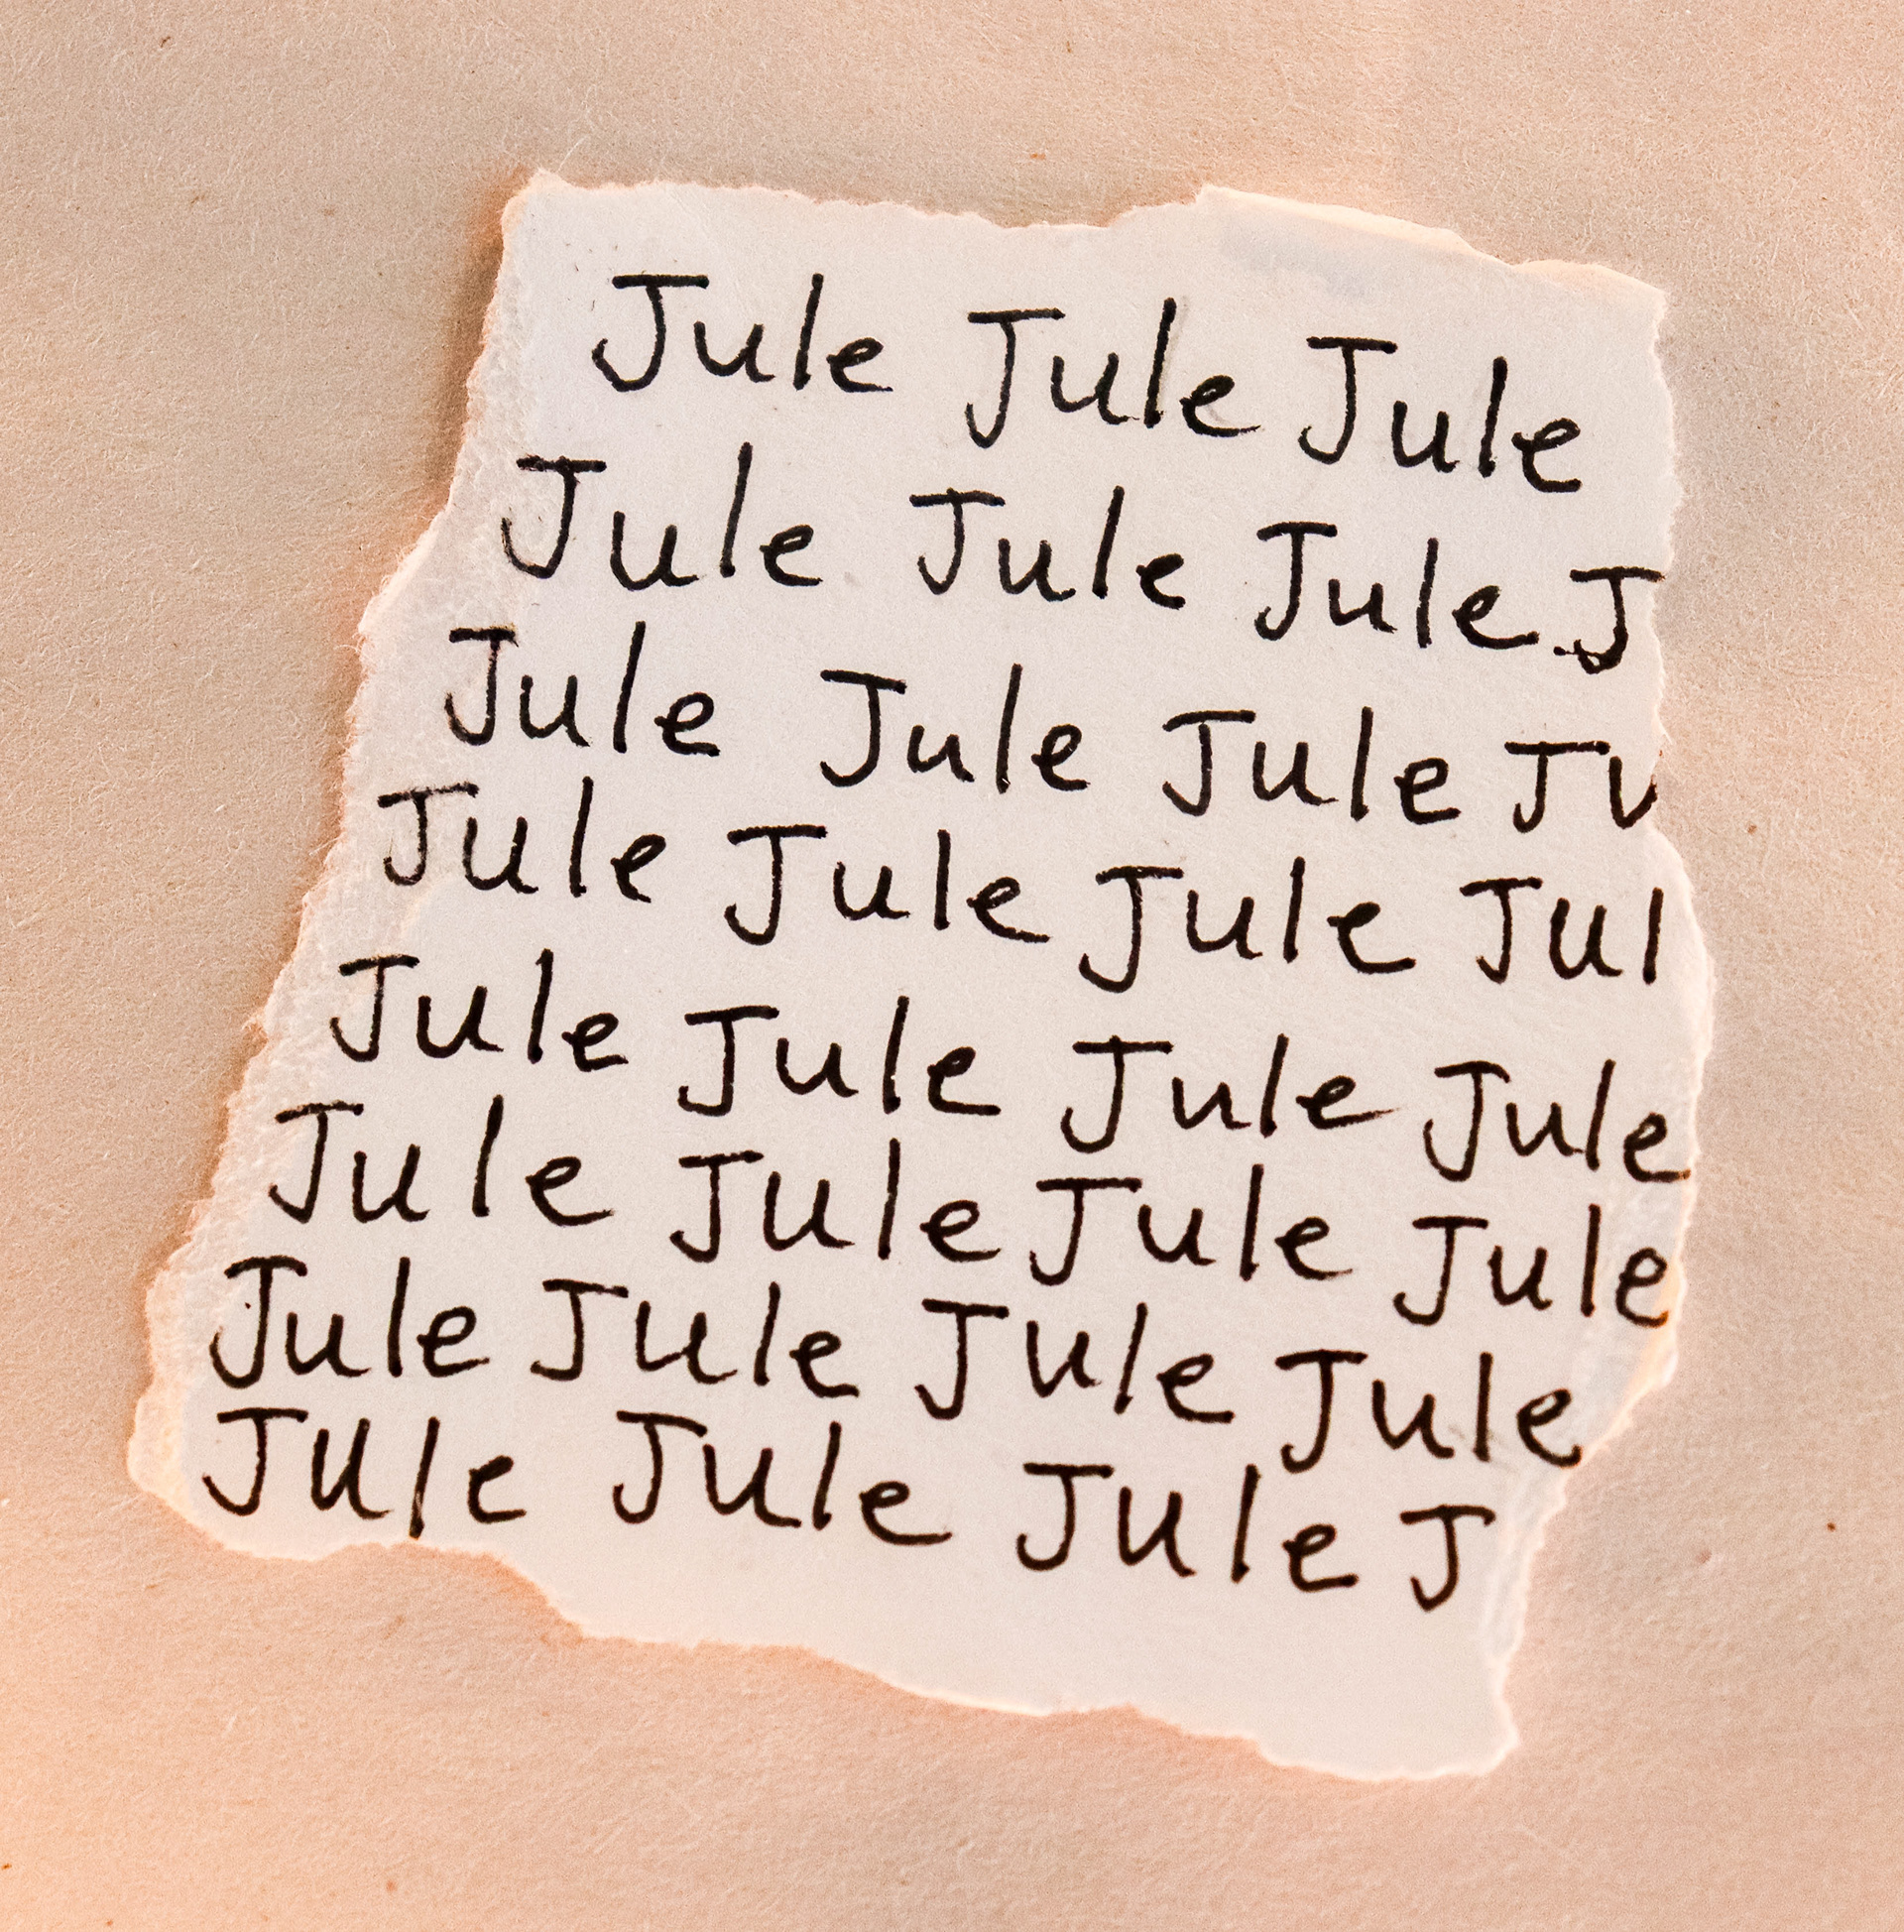 Jule Jule Jule
Jule Jule Jule J
Jule Jule Jule Ju
Jule Jule Jule Jul
Jule Jule Jule Jule
Jule Jule Jule Jule
Jule Jule Jule Jule
Jule Jule Jule J